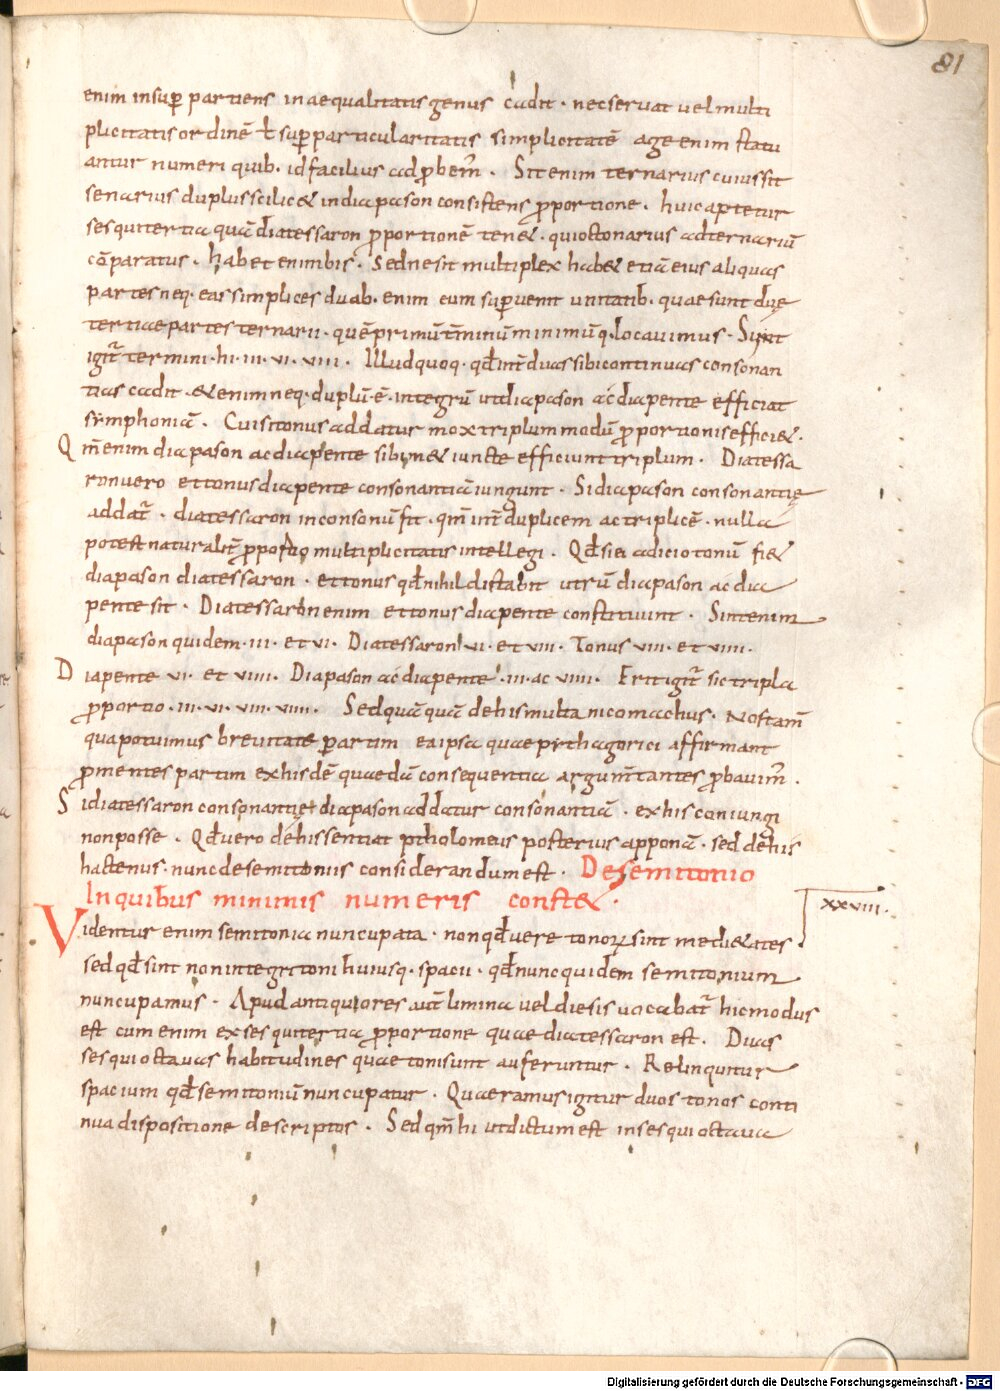 81
enim insup partiens inaequalitatis genus cadit · nec servat vel multi
plicitatis ordinē ł sup particularitatis simplicitatē age enim statu
antur numeri quib· id facilius adpbem̄ · Sit enim ternarius cuius sit
senarius duplus scilic& in diapason consistens pportione · huic aptetur
sesquitertia quā diatessaron pportionē ten& · qui octonarius ad ternariū
cōparatus · habet enim bis · Sed ne sit multiplex hab& etiā eius aliquas
partes neq· eas simplices duab· enim eum supvenit unitatib· quae sunt duę
tertiae partes ternarii · quē primū tm̄inū minimūq· locavimus · Sunt
igit̄ termini · hi · iii · vi · viii · Illud quoq· qd̄ int̄ duas sibi continuas consonan
tias cadit · & enim neq· duplū · ē · integrū ut diapason ac diapente efficiat
symphoniā · Cui si tonus addatur mox triplum modū pportionis effici& ·
Qm̄ enim diapason ac diapente sibim& iuncte efficiunt triplum · Diatessa
ron vero et tonus diapente consonantiā iungunt · Si diapason consonantię
addat̄ · diatessaron inconsonū fit · qm̄ int̄ duplicem ac triplicē · nulla
potest naturalit̄ pportio multiplicitatis intellegi · Qd̄ si ei adicio tonū fi&
diapason diatessaron · et tonus qd̄ nihil distabit utrū diapason ac dia
pente sit · Diatessaron enim et tonus diapente constituunt · Sint enim
diapason quidem · iii · et vi · Diatessaron vi · et viii · Tonus viii · et viiii ·
Diapente vi · et viiii · Diapason ac diapente · iii · ac viiii · Erit igit̄ sic tripla
pportio · iii · vi · viii · viiii · Sed quāquā de his multa nicomachus · Nos tam̄
qua potuimus brevitate partim ea ipsa quae pythagorici affirmant
pmentes partim ex hisdē quaedā consequentia argum̄tantes pbavim̄ ·
Si diatessaron consonantię diapason addatur consonantiā · ex his coniungi
non posse · Qd̄ vero de his sentiat ptholomeus posterius apponā · sed de his
hactenus · nunc de semitoniis considerandum est · De semitonio
In quibus minimis numeris const& ·
xxviii ·
Videntur enim semitonia nuncupata · non qd̄ vere tonoꝝ sint medi&ates ·
sed qd̄ sint non integri toni huiusq· spacii · qd̄ nunc quidem semitonium
nuncupamus · Apud antiquiores aut̄ limma vel diesis vocabat̄ hic modus
est cum enim ex sesquitertia pportione quae diatessaron est · Duas
sesquioctavas habitudines quae toni sunt auferuntur · Relinquitur
spacium qd̄ semitoniū nuncupatur · Quaeramus igitur duos tonos conti
nua dispositione descriptos · Sed qm̄ hi ut dictum est in sesquioctava
Digitalisierung gefördert durch die Deutsche Forschungsgemeinschaft · DFG